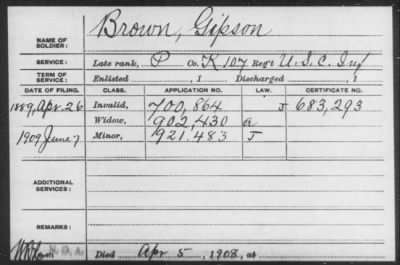 NAME OF SOLDIER: Brown, Gipson
SERVICE: Late rank, P Co. K, 107 Reg't U.S.C. Inf
TERM OF SERVICE: Enlisted , 1 Discharged , 1
DATE OF FILING. CLASS. APPLICATION NO. LAW. CERTIFICATE NO.
1889, Apr. 26 Invalid, 700,864 J 683,293
Widow, 902,430 a
1909 June 7 Minor, 921.483 J
ADDITIONAL SERVICES:
REMARKS:
N.O.A. Died Apr 5, 1908, at